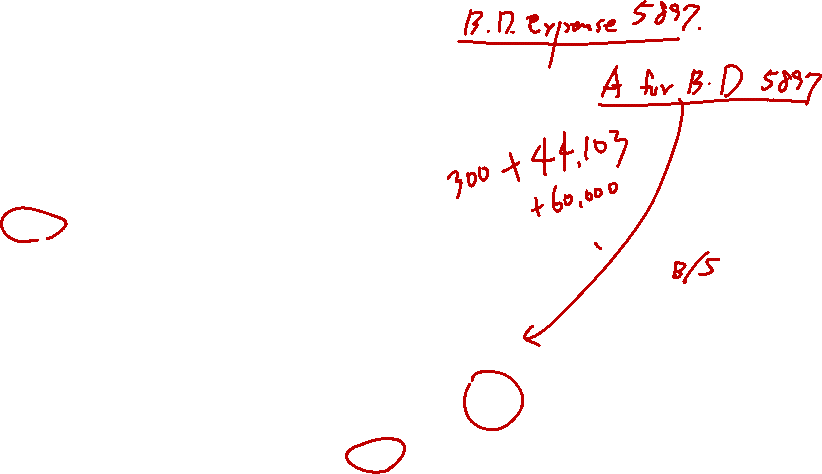 B.D. Expense 5897.
A for B.D 5897
300 + 44,103
+60,000
B/S